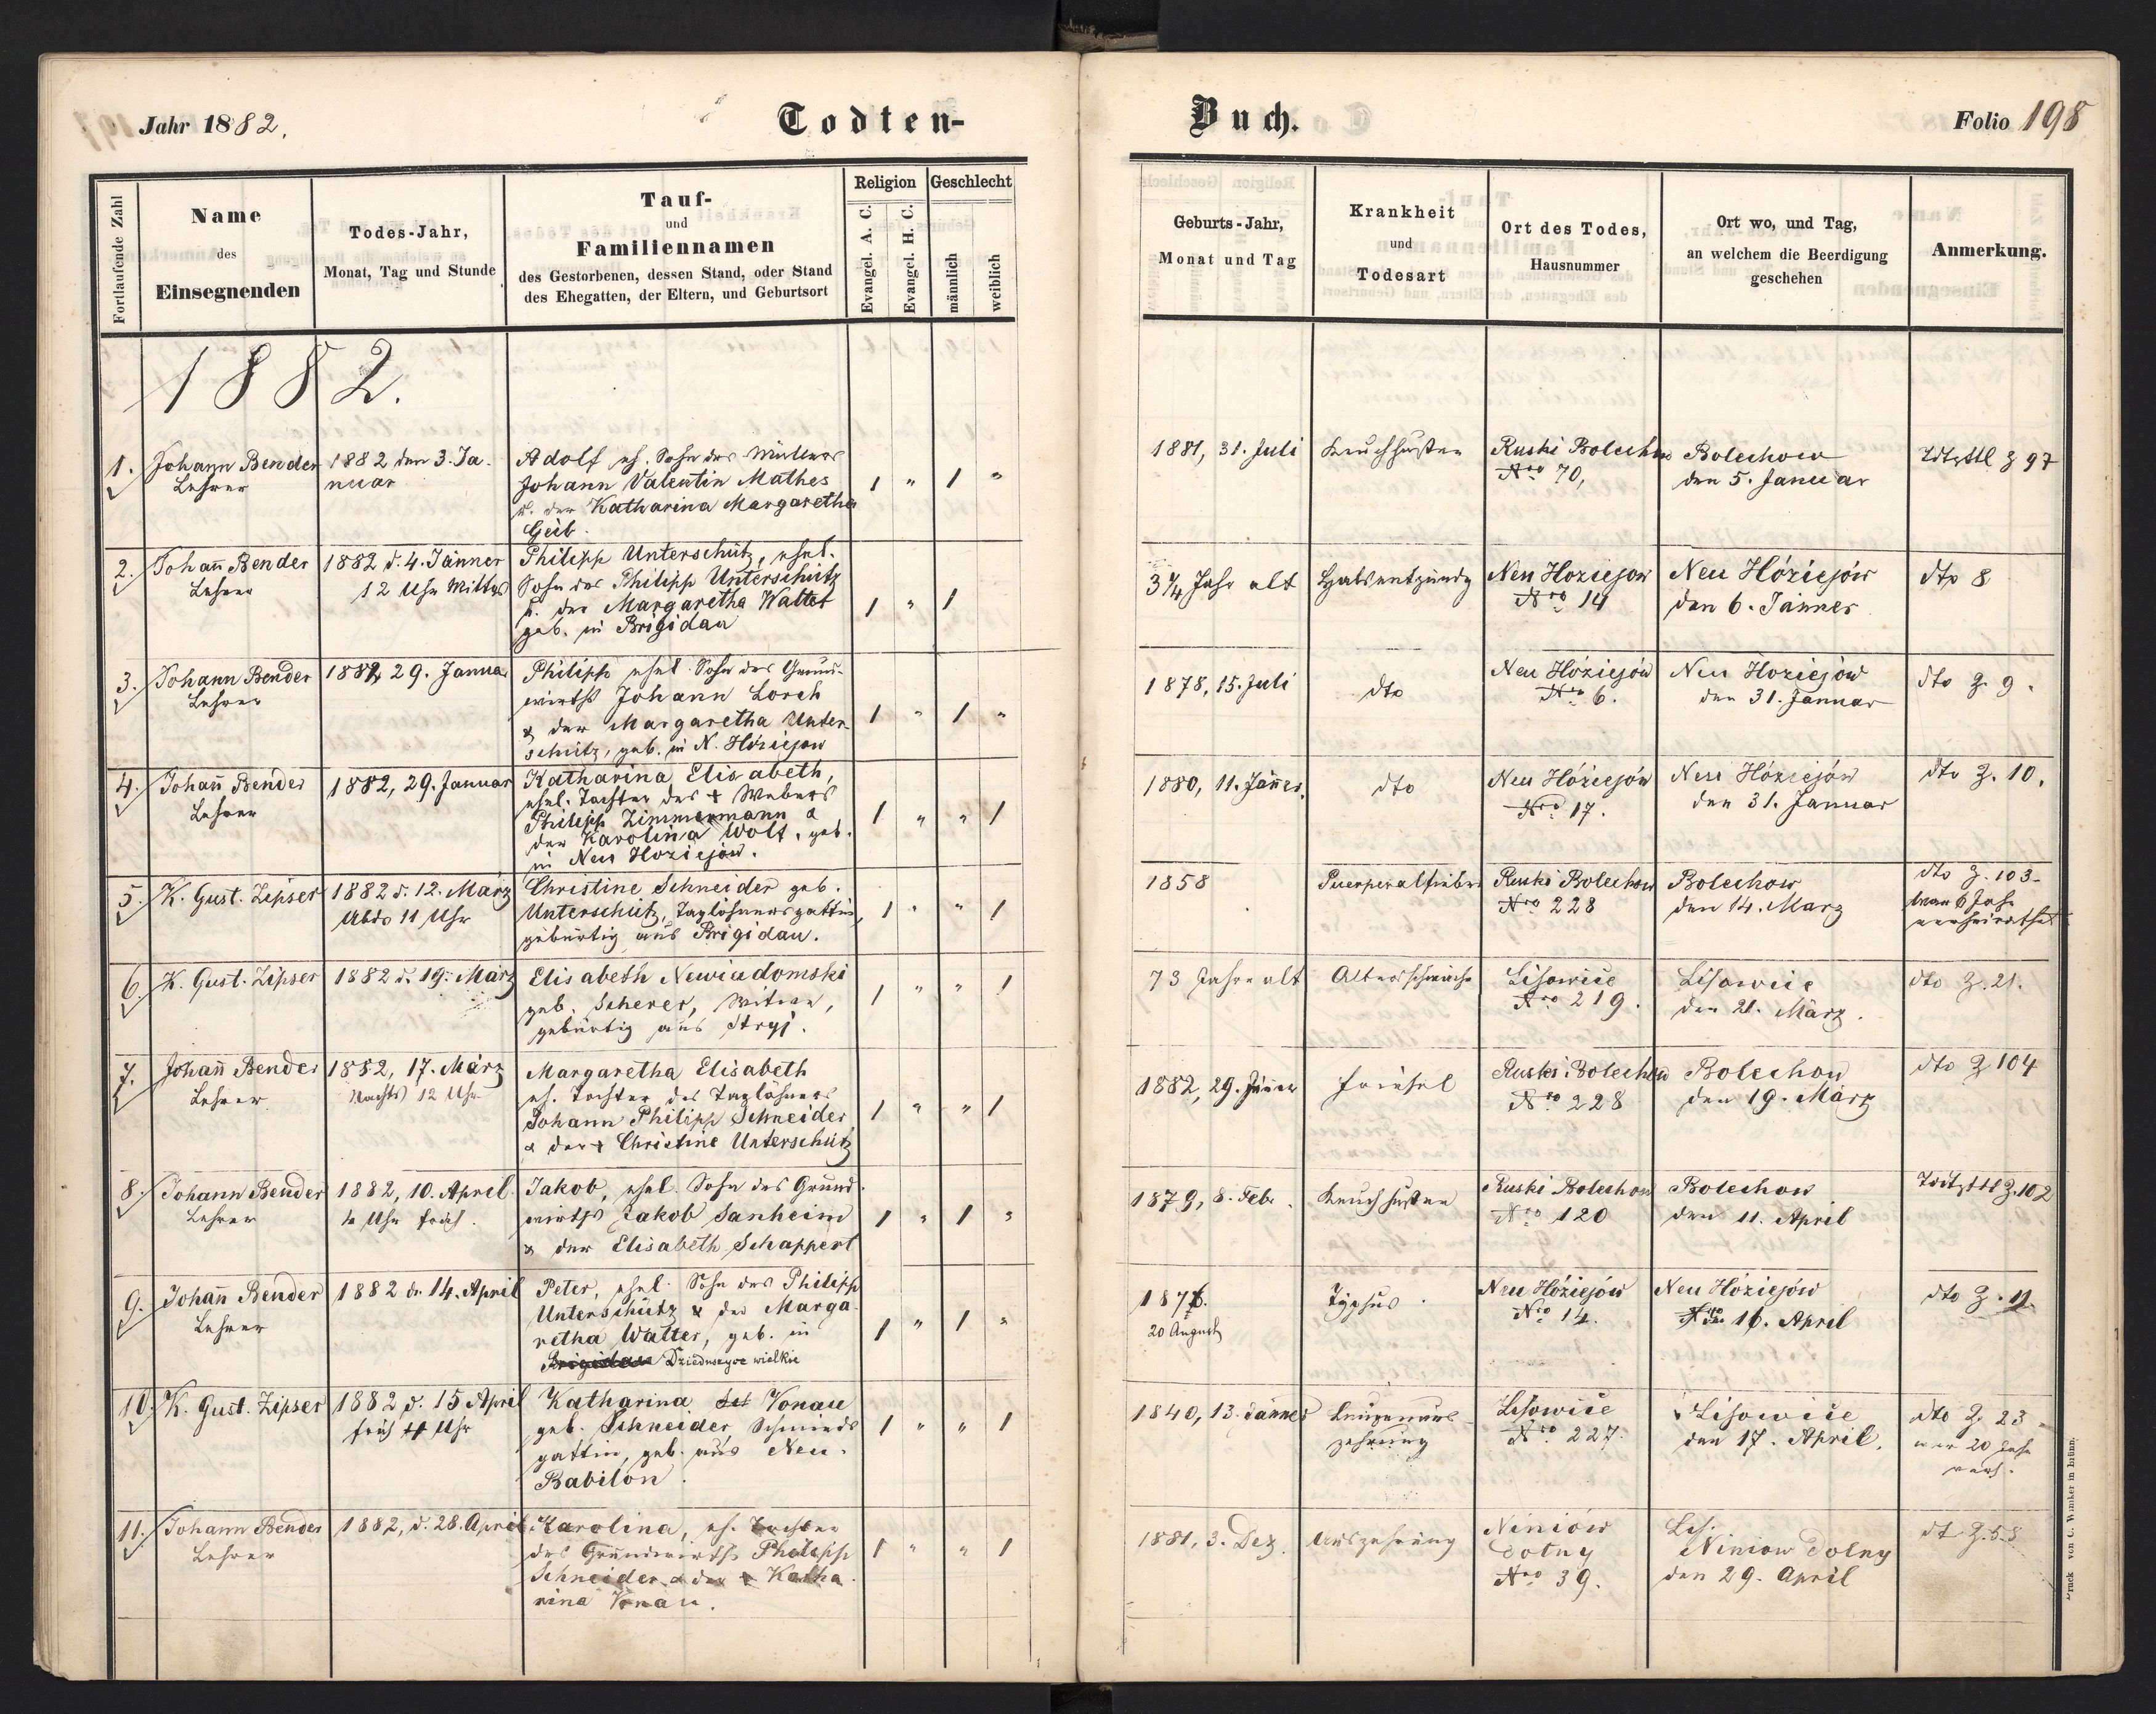 Jahr 1882.
Todten-
Buch.
Folio 198
Fortlaufende Zahl
Name
des
Einsegnenden
Todes-Jahr,
Monat, Tag und Stunde
Tauf-
und
Familiennamen
des Gestorbenen, dessen Stand, oder Stand
des Ehegatten, der Eltern, und Geburtsort
Religion
Evangel. A. C.
Evangel. H. C.
Geschlecht
männlich
weiblich
Geburts-Jahr,
Monat und Tag
Krankheit
und
Todesart
Ort des Todes,
Hausnummer
Ort wo, und Tag,
an welchem die Beerdigung
geschehen
Anmerkung.
1882.
1.
Johann Bender
Lehrer
1882 den 3. Ja-
nuar
Adolf eh. Sohn des Müllers
Johann Valentin Mathes
u. der Katharina Margaretha
Geib.
1 " 1 "
1881, 31. Juli
Keuchhusten
Ruski Bolechow
Nro 70,
Bolechow
den 5. Januar
Z 97
2.
Johañ Bender
Lehrer
1882 d. 4. Jänner
12 Uhr Mittgs
Philipp Unterschütz, ehel.
Sohn des Philipp Unterschütz
u. der Margaretha Walter
geb. in Brigidau
1 " 1
3¼ Jahr alt
Halsentzündg
Neu Hoziejow
Nro 14
Neu Hóziejów
den 6. Jänner
dto 8
3.
Johann Bender
Lehrer
1882, 29. Januar
Philipp ehel. Sohn des Grund-
wirths Johann Lorch
& der Margaretha Unter-
schütz, geb. in N. Hóziejow
1 " 1 "
1878, 15. Juli
dto
Neu Hóziejów
Nro 6.
Neu Hoziejów
den 31. Januar
dto Z. 9.
4.
Johañ Bender
Lehrer
1882, 29. Januar
Katharina Elisabeth,
ehel. Tochter des + Webers
Philipp Zimmermann &
der Karolina Wolf, geb.
in Neu Hoziejów.
1 " " 1
1880, 11. Jäñer.
dto
Neu Hóziejów
Nro 17.
Neu Hóziejów
den 31. Januar
dto Z. 10.
5.
K. Gust. Zipser
1882 d. 12. März
Abds 11 Uhr
Christine Schneider geb.
Unterschütz, Taglöhnersgattin,
gebürtig aus Brigidau.
1 " " 1
1858
Puerperalfieber
Ruski Bolechow
Nro 228
Bolechow
den 14. März
dto Z. 103
war 6 Jahr
verheirathet
6.
K. Gust. Zipser
1882 d. 19. März
Elisabeth Newiadomski
geb. Scherer, Witwe,
gebürtig aus Stryj.
1 " " 1
73 Jahre alt
Altersschwäche
Lisowice
Nro 219.
Lisowice
den 21. März.
dto Z. 21.
7.
Johañ Bender
Lehrer
1882, 17. März
Nachts 12 Uhr
Margaretha Elisabeth
eh. Tochter des Taglöhners
Johann Philipp Schneider
& der + Christine Unterschütz
1 " " 1
1882, 29. Jäner
Friesel
Ruski Bolechow
Nro 228
Bolechow
den 19. März
dto Z 104
8.
Johann Bender
Lehrer
1882, 10. April
4 Uhr früh.
Jakob, ehel. Sohn des Grund-
wirths Jakob Sanheim
& der Elisabeth Schappert
1 " 1 "
1879, 8. Febr.
Keuchhusten
Ruski Bolechow
Nro 120
Bolechow
den 11. April
Z. 102
9.
Johañ Bender
Lehrer
1882 d. 14. April
Peter, ehel. Sohn des Philipp
Unterschütz & der Marga-
retha Walter, geb. in
Brigidau Dzieduszyce wielkie
1 " 1 "
1876.
20 August
Typhus.
Neu Hóziejów
Nro 14.
Neu Hóziejów
16. April
dto Z. 11.
10.
K. Gust. Zipser
1882 d. 15 April
früh 4 Uhr
Katharina Vonau
geb. Schneider, Schmieds-
gattin, geb. aus Neu-
Babilon.
1 " " 1
1840, 13. Jänner
Lungenaus-
zehrung
Lisowice
Nro 227.
Lisowice
den 17. April.
dto Z. 23
war 20 Jahr
verh.
11.
Johann Bender
Lehrer
1882, d. 28. April
Karolina, eh. Tochter
des Grundwirths Philipp
Schneider & der + Katha-
rina Vonau.
1 " " 1
1881, 3. Dez.
Auszehrung
Niniów
dolny
Nro 39.
Niniow dolny
den 29. April
dt Z. 58
Druck von C. Winiker in Brünn.